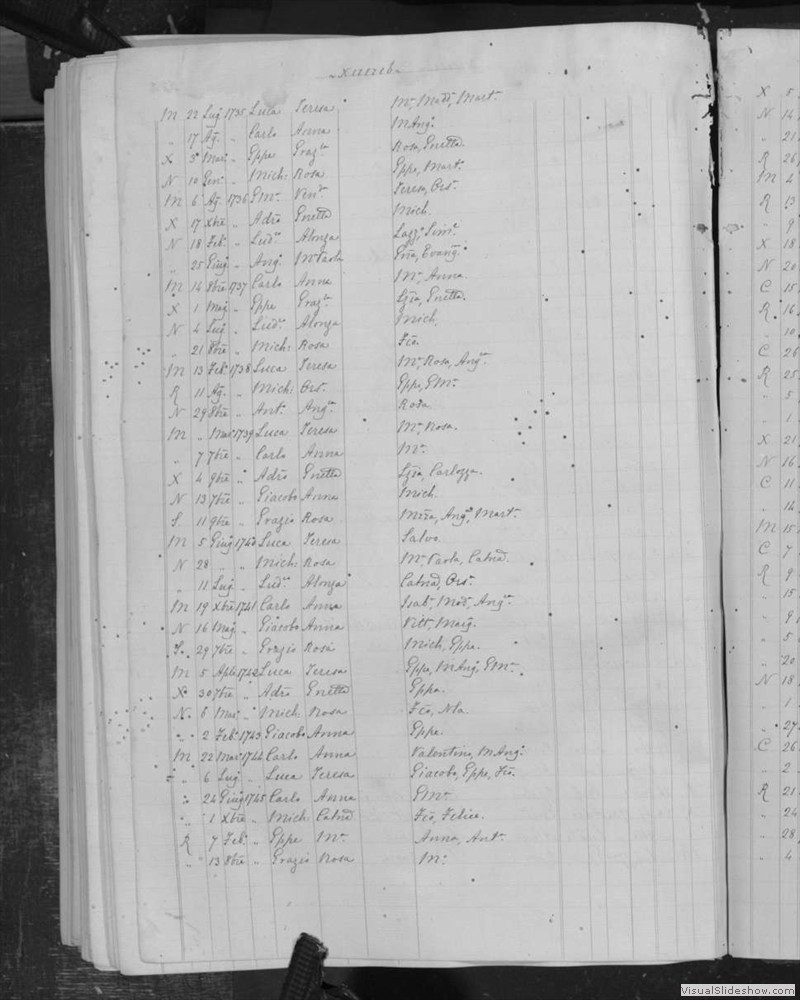 Xuereb
M 22 Lug. 1735 Luca Teresa Mª, Madª, Mart.
" 17 Ag. " Carlo Anna MAng.
X 3 Mar. " Eppe Grazª Rosa, Gnetta.
N 10 Gen. " Mich. Rosa Eppe, Mart.
M 6 Ag. 1736 GMª Venª Teresa, Ors.
X 17 Xbre " Adrº Gnetta Mich.
N 18 Feb. " Ludª Alonza Lazzº, Simª.
" 25 Giug. " Ang. MPaola Gña, Evang.
M 14 8bre 1737 Carlo Anna Mª, Anna.
X 1 Mag. " Eppe Grazª Lgza, Gnetta.
N 4 Lug. " Ludª Alonza Mich.
" 21 8bre " Mich. Rosa Fco.
M 13 Feb. 1738 Luca Teresa Mª, Rosa, Angª.
R 11 Ag. " Mich. Ors. Eppe, GMª.
N 29 8bre " Ant. Angª Rosa.
M " Mar. 1739 Luca Teresa Mª Rosa.
" 7 7bre " Carlo Anna Mª.
X 4 9bre " Adrº Gnetta Lgza, Carlozza.
N 13 7bre " Giacobo Anna Mich.
S. 11 9bre " Grazio Rosa Angº, Mart.
M 5 Giug. 1740 Luca Teresa Salvo.
N 28 " " Mich. Rosa Mª Paola, Catna.
" 11 Lug. " Ludª Alonza Catna, Ors.
M 19 Xbre 1741 Carlo Anna Isabª, Mad., Angª.
N 16 Mag. " Giacobo Anna Vitt. Marg.
S. 29 7bre " Grazio Rosa Mich, Eppa.
M 5 Aple 1742 Luca Teresa Eppe, MAng., GMª.
X 30 7bre " Adrº Gnetta Eppa.
N. 6 Mar. " Mich. Rosa Fco, Nla.
" 2 Feb. 1743 Giacobo Anna Eppe.
M 22 Mar. 1744 Carlo Anna Valentino, MAng.
" 6 Lug. " Luca Teresa Giacobo, Eppe, Fco.
" 24 Giug. 1745 Carlo Anna GMª.
" 1 Xbre " Mich. Catna Fco, Felice.
R 7 Feb. " Eppe Mª Anna, Ant.
" 13 8bre " Grazio Rosa Mª.
X 5
N 14
" 21
R 26
M 4
R 13
" 9
X 18
N 20
C 15
R 16
" 10
C 26
R 25
" 5
" 1
X 21
N 16
C 11
" 14
M 15
C 7
R 9
" 15
" 9
" 5
" 20
N 18
" 1
" 27
C 26
" 2
R 21
" 24
" 28
" 4
VisualSlideshow.com